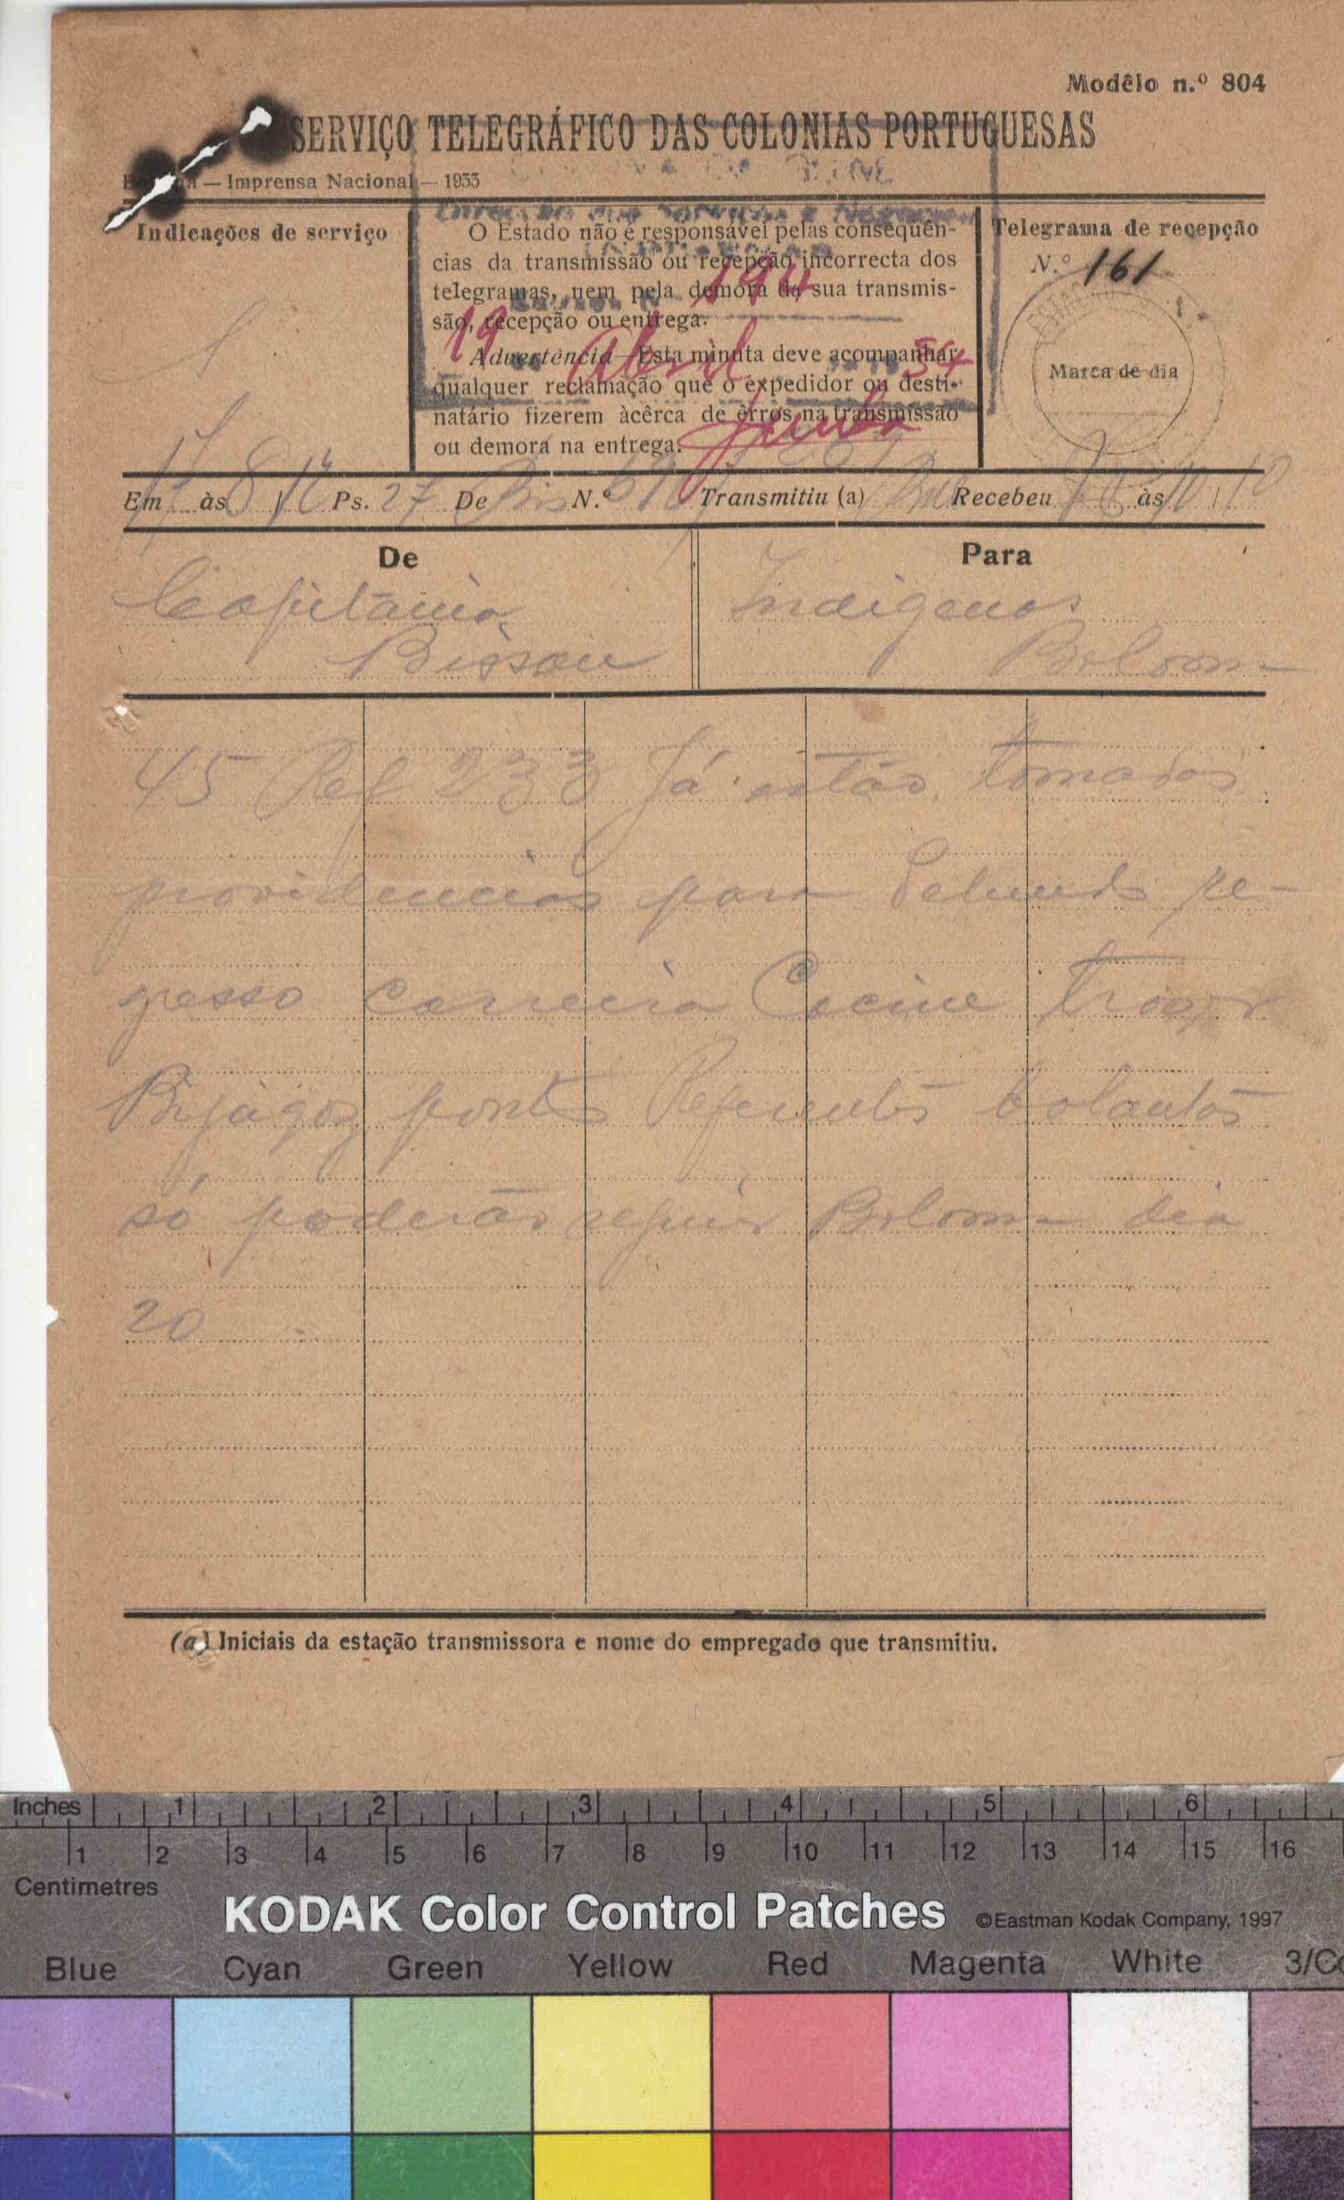 Modêlo n.º 804
SERVIÇO TELEGRÁFICO DAS COLONIAS PORTUGUESAS
— Imprensa Nacional — 1933
Indicações de serviço
O Estado não é responsável pelas consequên-
cias da transmissão ou recepção incorrecta dos
telegramas, nem pela demora da sua transmis-
são, recepção ou entrega.
Advertência — Esta minuta deve acompanhar
qualquer reclamação que o expedidor ou desti-
natário fizerem àcêrca de êrros na transmissão
ou demora na entrega.
194
19 Abril 54
Telegrama de recepção
N.º 161
Marca de dia
Em 17 às 8 Ps. 27 De Bis N.º Transmitiu (a) Recebeu às 10 10
De
Para
Capitania
Bissau
Indigenas
Bolama
45 Ref 233 Já estão tomadas
providencias para
gresso carreira Cacine trazer
Bijágos ponto Referentes balantas
só poderão seguir Bolama dia
20
(a) Iniciais da estação transmissora e nome do empregado que transmitiu.
Inches 1 2 3 4 5 6
1 2 3 4 5 6 7 8 9 10 11 12 13 14 15 16
Centimetres
KODAK Color Control Patches ©Eastman Kodak Company, 1997
Blue Cyan Green Yellow Red Magenta White 3/Co